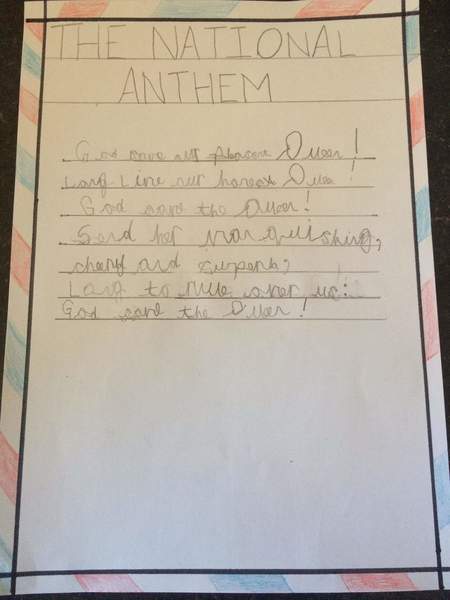 THE NATIONAL
ANTHEM
God save our Queen!
Long Live our Queen!
God save the Queen!
Send her
and
Long to rule over us:
God save the Queen!